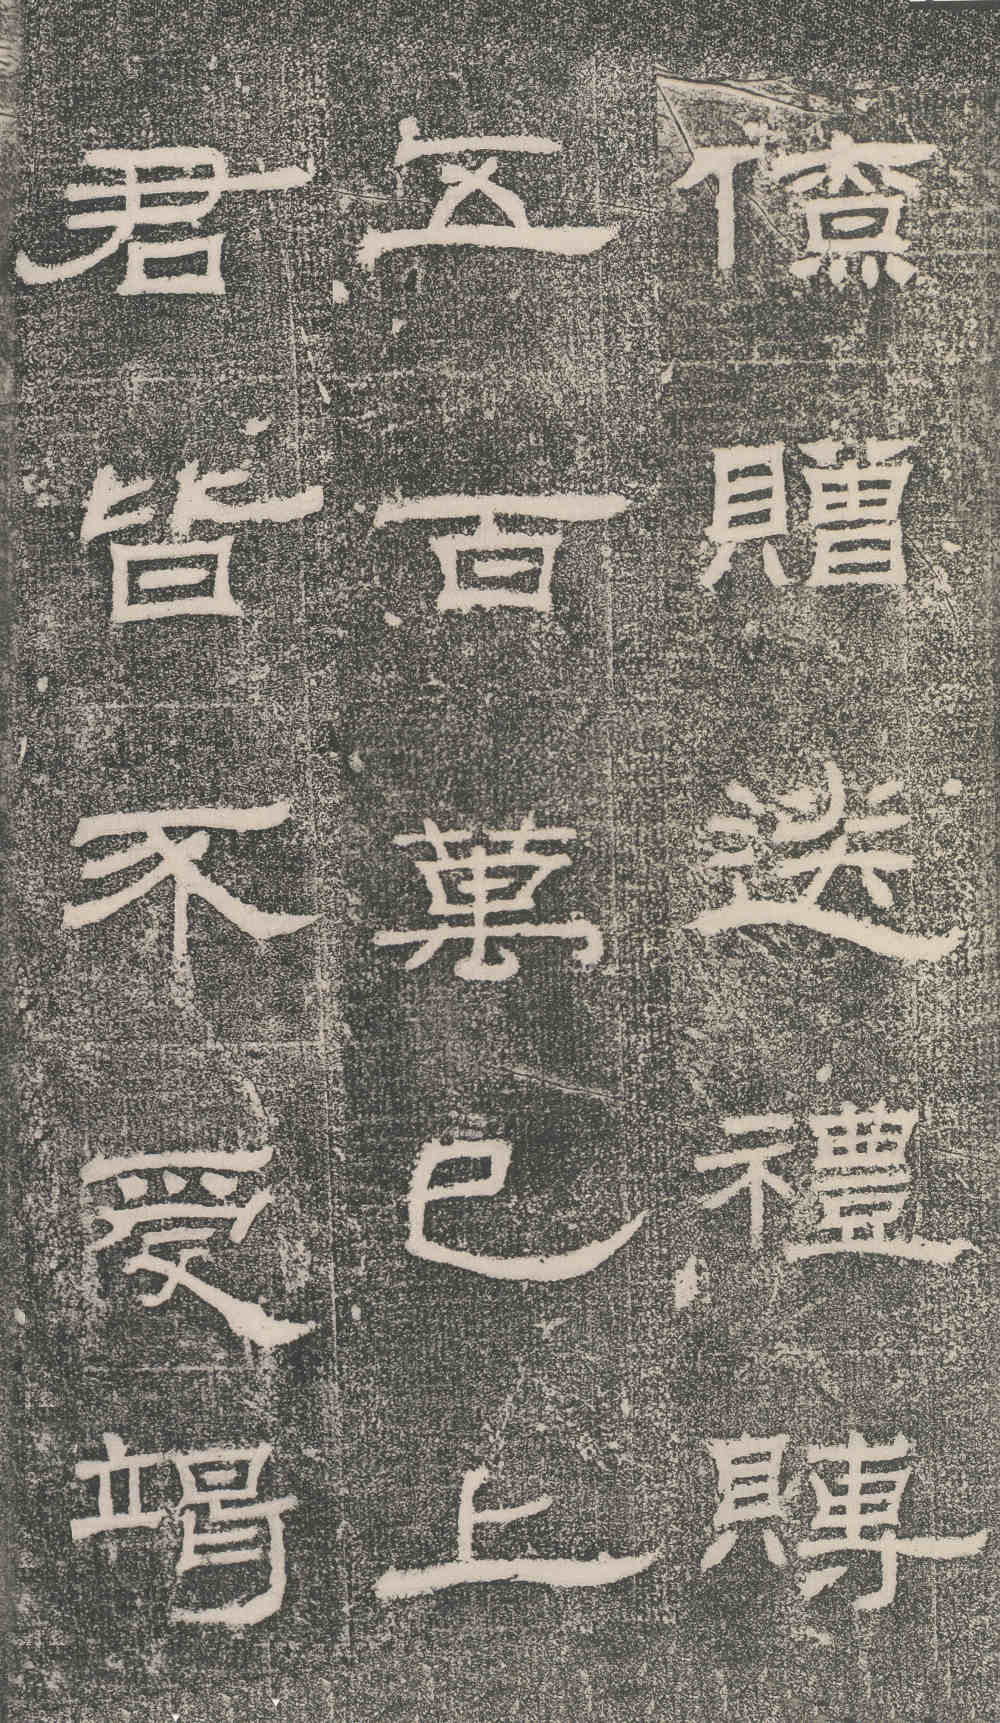 僚贈送禮賻
五百萬已上
君皆不受竭